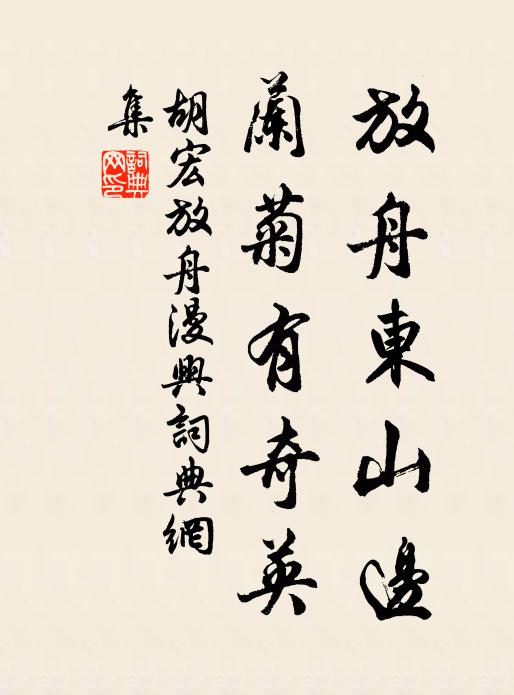 放舟東山邊
蘭菊有奇英
胡宏放舟漫興詞典網
集
詞典
网印